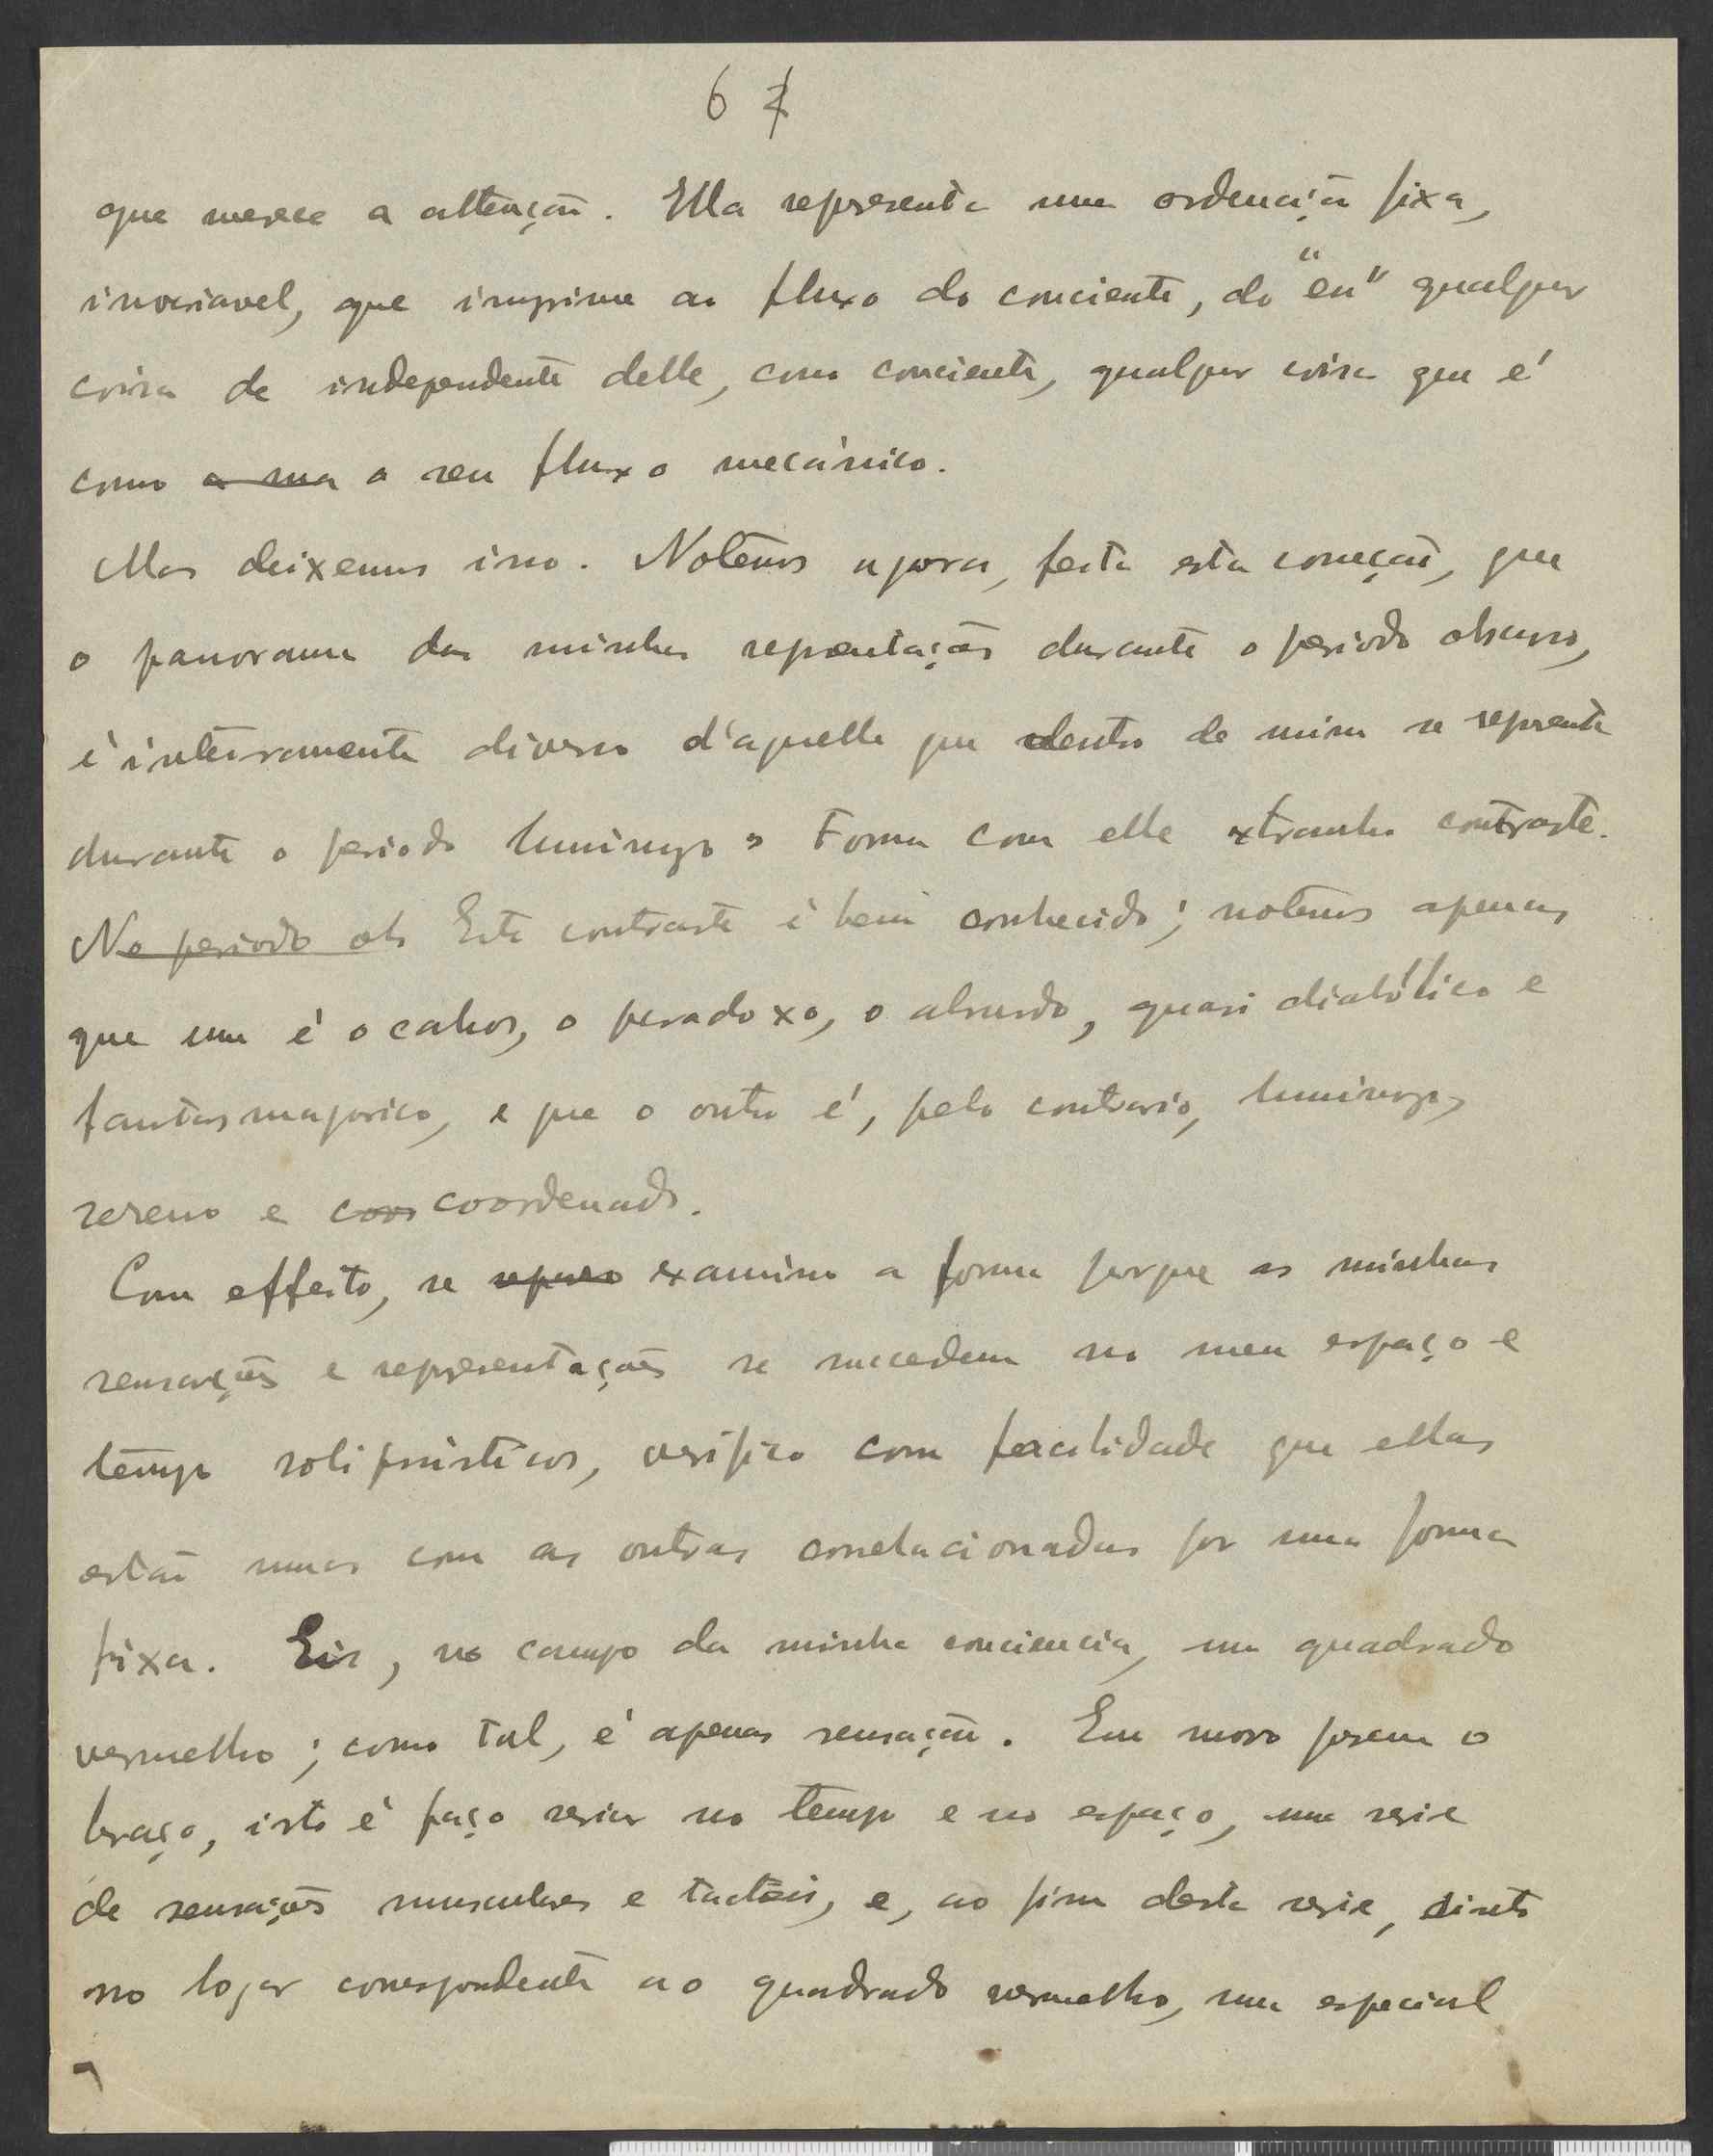 6 7
que merece a attenção. Ella representa uma ordenação fixa,
invariavel, que imprime ao fluxo do conciente, do "eu" qualquer
coisa de independente delle, como conciente, qualquer coisa que é
como a sua o seu fluxo mecánico.
Mas deixemos isso. Notemos agora, feita esta coneçaõ, que
o panorama das minhas repsentações durante o periodo obscuro,
é inteiramente diverso d'aquelle que dentro de mim se represente
durante o periodo luminoso. Forma com elle extranho contraste.
No periodo obs Este contraste é bem conhecido; notemos apenas
que um é o cahos, o paradoxo, o absurdo, quasi diabólico e
fantasmagorico, e que o outro é, pelo contrario, luminoso,
sereno e coor coordenado.
Com effeito, se reparo examino a forma porque as minhas
sensações e representações se succedem no meu espaço e
tempo solipsisticos, verifico com facilidade que ellas
estão umas com as outras correlacionadas por uma forma
fixa. Eis, no campo da minha conciencia, um quadrado
vermelho; como tal, é apenas sensação. Eu movo porem o
braço, isto é faço seriar no tempo e no espaço, uma serie
de sensações musculares e tacteis, e, ao fim desta serie, sinto
no logar correspondente ao quadrado vermelho, uma especial